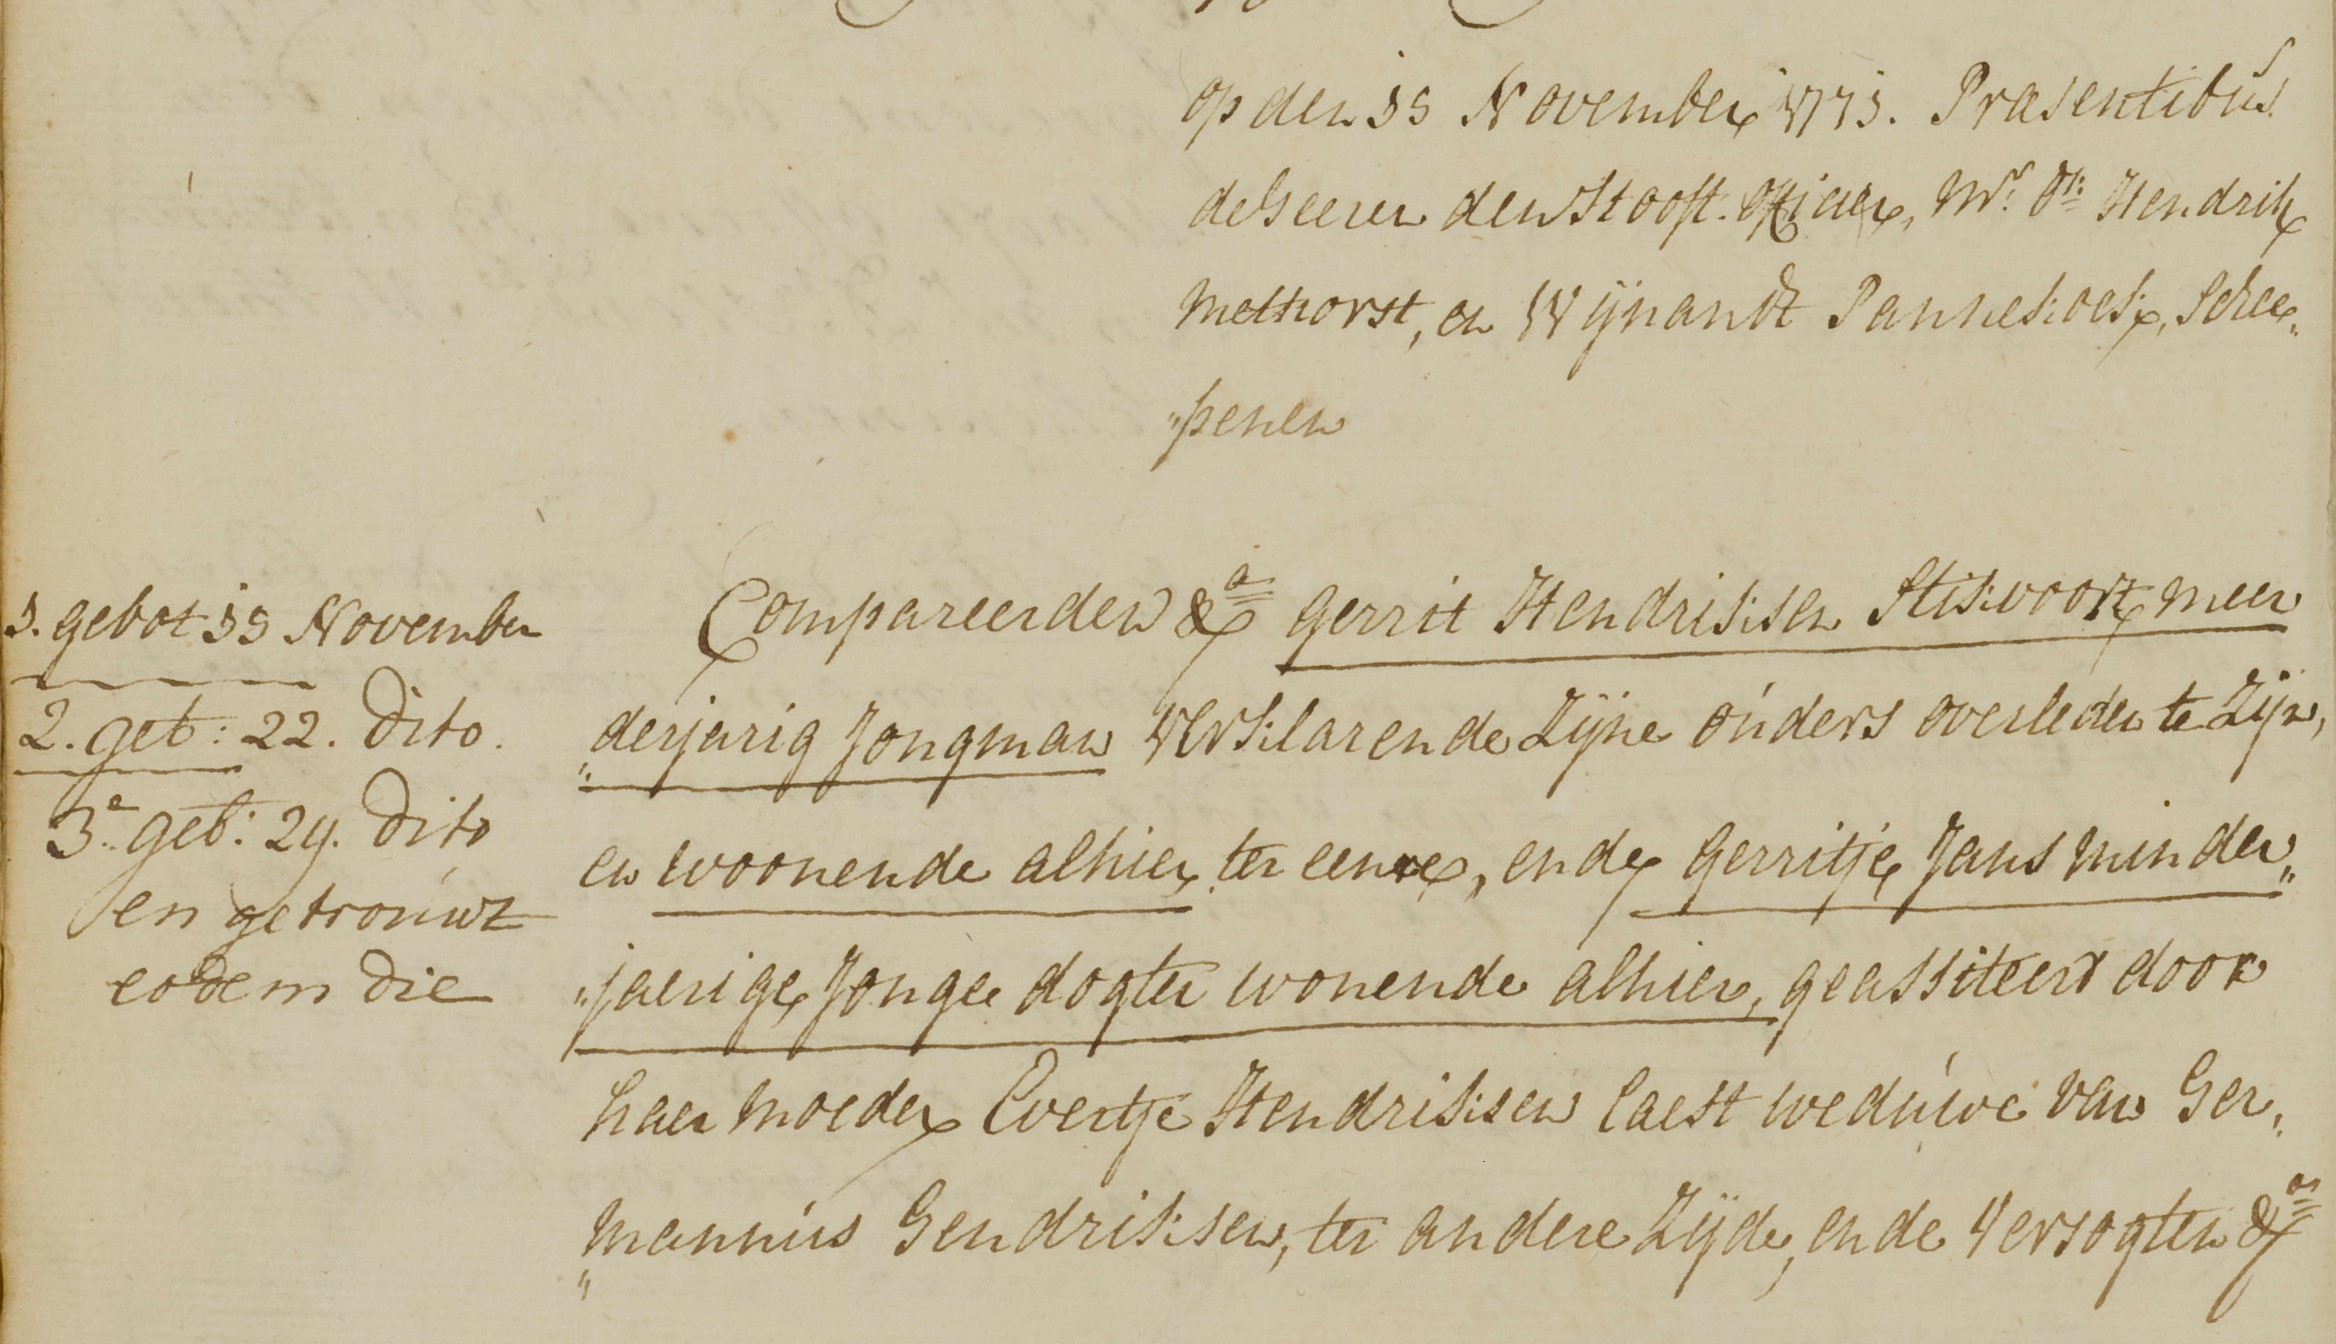 op den 15 November 1771. Præsentibus
de heeren den Hooft. officier, Mr. Ot: Hendrik
Methorst, en Wijnandt Pannekoek, Schee„
„penen
1. gebot 15 November
2. geb: 22. Dito.
3e. geb: 29. Dito
en getrouwt
eodem Die
Compareerden &a Gerrit Hendriksen Stikvoort meer
„derjarig Jongman verklarende Zijne ouders overleden te Zijn,
en woonende alhier ter eenre, ende Gerritje Jans minder„
„jaerige Jonge dogter wonende alhier, geassiteert door
haer moeder Evertje Hendriksen laest weduwe van Her„
„mannus Hendriksen, ter andere Zijde, ende versogten &a